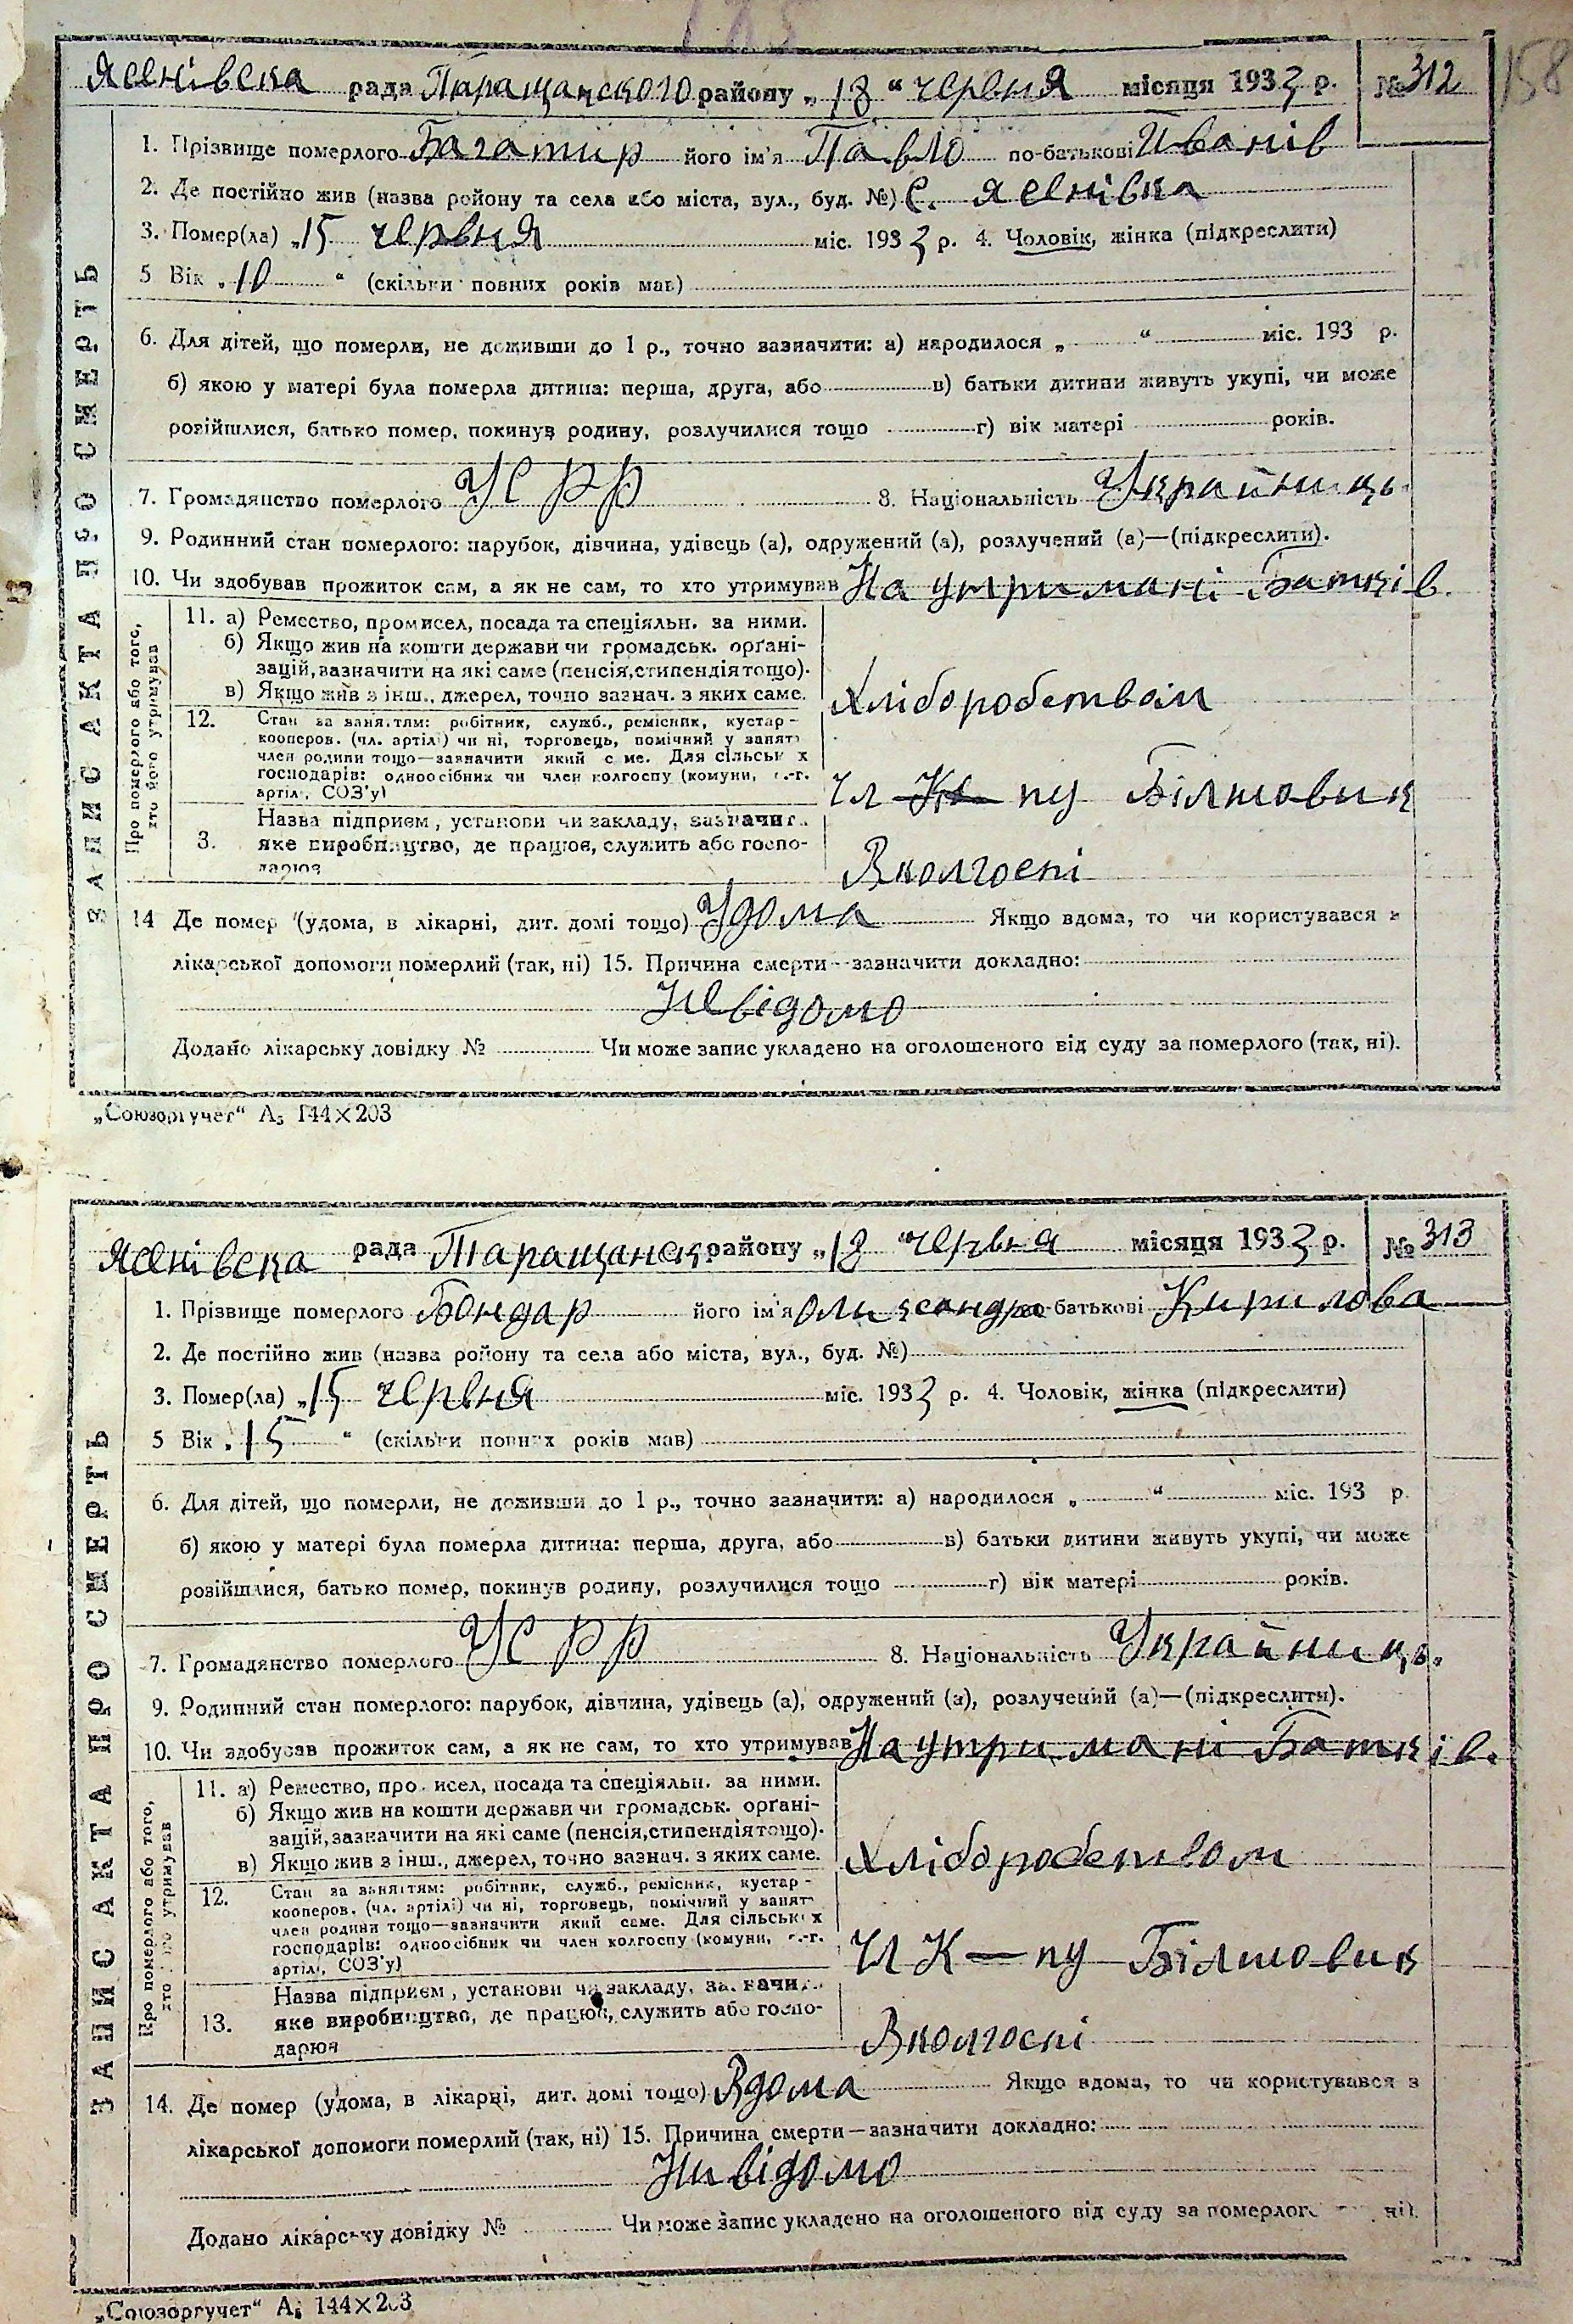 158
Ясенівська рада Таращанського району „18“ червня місяця 1933 р. № 312
ЗАПИС АКТА ПРО СМЕРТЬ
1. Прізвище померлого Багатир його ім'я Павло по-батькові Иванів
2. Де постійно жив (назва району та села або міста, вул., буд. №) С. Ясенівка
3. Помер(ла) „15 червня міс. 1933 р. 4. Чоловік, жінка (підкреслити)
5 Вік „10 “ (скільки повних років мав)
6. Для дітей, що померли, не доживши до 1 р., точно зазначити: а) народилося „ “ міс. 193 р.
б) якою у матері була померла дитина: перша, друга, або в) батьки дитини живуть укупі, чи може
розійшлися, батько помер, покинув родину, розлучилися тощо г) вік матері років.
7. Громадянство померлого УСРР 8. Національність Українець
9. Родинний стан померлого: парубок, дівчина, удівець (а), одружений (а), розлучений (а)—(підкреслити).
10. Чи здобував прожиток сам, а як не сам, то хто утримував На утримані Батьків.
Про померлого або того, хто його утримував
11. а) Ремество, промисел, посада та спеціяльн. за ними.
б) Якщо жив на кошти держави чи громадськ. орґані-
зацій, зазначити на які саме (пенсія, стипендія тощо).
в) Якщо жив з інш., джерел, точно зазнач. з яких саме.
Хліборобством
12. Стан за заняттям: робітник, служб., ремісник, кустар-
кооперов. (чл. артілі) чи ні, торговець, помічний у занят
член родини тощо—зазначити який с ме. Для сільськ х
господарів: одноосібник чи член колгоспу (комуни, с.-г.
артіл., СОЗ'у)
Чл К-пу Білшовик
3. Назва підприєм, установи чи закладу, зазначит.
яке виробництво, де працює, служить або госпо-
дарює
В колгоспі
14 Де помер (удома, в лікарні, дит. домі тощо) Удома Якщо вдома, то чи користувався з
лікарської допомоги померлий (так, ні) 15. Причина смерти—зазначити докладно:
Невідомо
Додано лікарську довідку № Чи може запис укладено на оголошеного від суду за померлого (так, ні).
„Союзоргучет“ А5 144×203
Ясенівська рада Таращанськ району „18 “ червня місяця 1933 р. № 313
ЗАПИС АКТА ПРО СМЕРТЬ
1. Прізвище померлого Бондар його ім'я Оликсандра по-батькові Кирилова
2. Де постійно жив (назва району та села або міста, вул., буд. №)
3. Помер(ла) „15 червня міс. 1933 р. 4. Чоловік, жінка (підкреслити)
5 Вік „15 “ (скільки повних років мав)
6. Для дітей, що померли, не доживши до 1 р., точно зазначити: а) народилося „ “ міс. 193 р.
б) якою у матері була померла дитина: перша, друга, або в) батьки дитини живуть укупі, чи може
розійшлися, батько помер, покинув родину, розлучилися тощо г) вік матері років.
7. Громадянство померлого УСРР 8. Національність Українець.
9. Родинний стан померлого: парубок, дівчина, удівець (а), одружений (а), розлучений (а)—(підкреслити).
10. Чи здобував прожиток сам, а як не сам, то хто утримував На утримані Батьків.
Про померлого або того, хто його утримував
11. а) Ремество, промисел, посада та спеціяльн. за ними.
б) Якщо жив на кошти держави чи громадськ. орґані-
зацій, зазначити на які саме (пенсія, стипендія тощо).
в) Якщо жив з інш., джерел, точно зазнач. з яких саме.
Хліборобством
12. Стан за заняттям: робітник, служб., ремісник, кустар-
кооперов. (чл. артілі) чи ні, торговець, помічний у занят
член родини тощо—зазначити який саме. Для сільських
господарів: одноосібник чи член колгоспу (комуни, с.-г.
артіл., СОЗ'у)
Чл К-пу Білшовик
13. Назва підприєм, установи чи закладу, зазначи
яке виробництво, де працює, служить або госпо-
дарює
В колгоспі
14. Де помер (удома, в лікарні, дит. домі тощо) Вдома Якщо вдома, то чи користувався з
лікарської допомоги померлий (так, ні) 15. Причина смерти—зазначити докладно:
Нивідомо
Додано лікарську довідку № Чи може запис укладено на оголошеного від суду за померлого ні).
„Союзоргучет“ А5 144×203